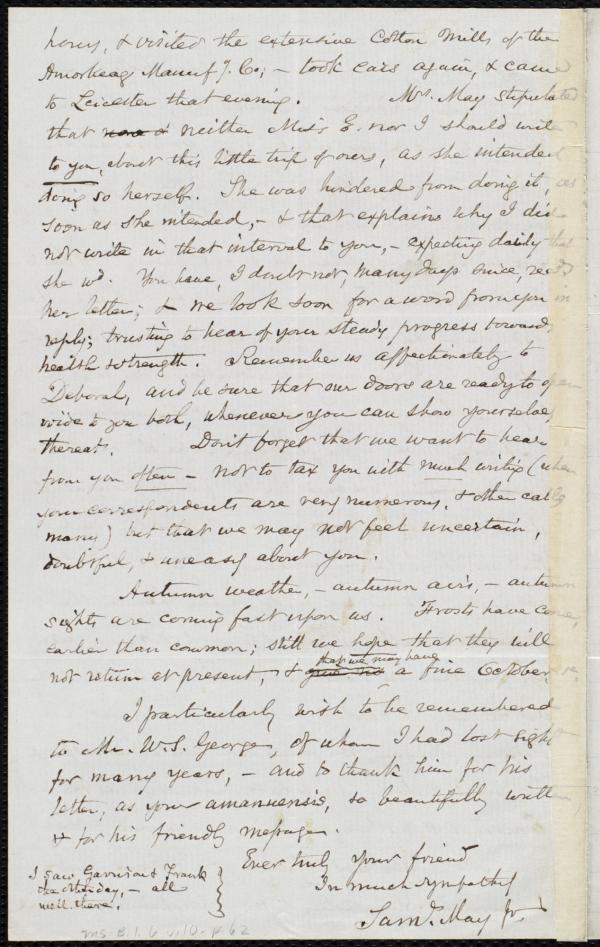 hours, & visited the extensive Cotton Mills of the
Amoskeag Manuf'g. Co; – took cars again, & came
to Leicester that evening. Mrs. May stipulated
that neither Miss E. nor I should write
to you, about this little trip of ours, as she intended
doing so herself. She was hindered from doing it, as
soon as she intended, – & that explains why I did
not write in that interval to you, – expecting daily that
she wd. You have, I doubt not, many days since, rec'd
her letter; & we look soon for a word from you in
reply; trusting to hear of your steady progress towards
health & strength. Remember us affectionately to
Deborah, and be sure that our doors are ready to open
wide to you both, whenever you can show yourselves
thereat. Don't forget that we want to hear
from you often – not to tax you with much writing (when
your correspondents are very numerous, & other calls
many) but that we may not feel uncertain,
doubtful, & uneasy about you.
Autumn weather, – autumn airs, – autumn
sights are coming fast upon us. Frosts have come,
earlier than common; still we hope that they will
not return at present, & that we may have a fine October.
I particularly wish to be remembered
to Mr. W. S. George, of whom I had lost sight
for many years, – and to thank him for his
letter, as your amanuensis, so beautifully written
& for his friendly message.
Ever truly your friend
In much sympathy
Saml. May Jr.
I saw Garrison & Frank
the other day, – all
well there.
ms. B. 1. 6 v. 10. p. 62